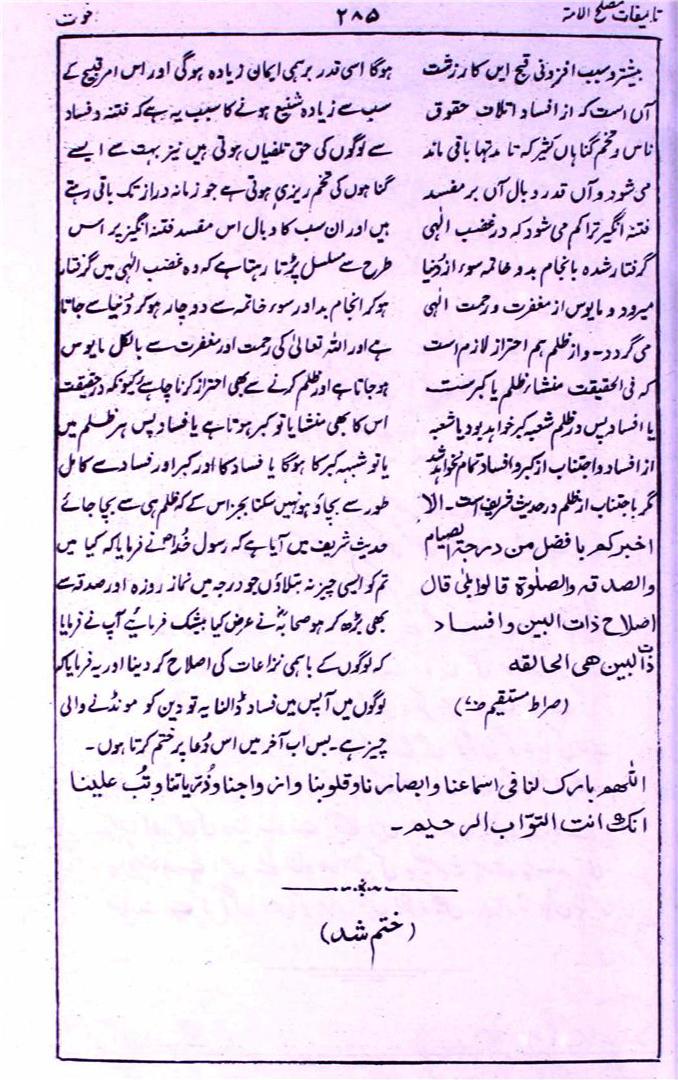 تالیفات مصلح الامۃ
۲۸۵
خوت
بیشتر و سبب افزونی قبح ایں کار زشت
آں است کہ از افساد اتلاف حقوق
ناس و تخم گناہاں کثیر کہ تا مدتہا باقی ماند
می شود و آں قدر وبال آں بر مفسد
فتنہ انگیز تراکم می شود کہ در غضب الٰہی
گرفتار شدہ بانجام بد و خاتمہ سوء از دُنیا
میرود و مایوس از مغفرت و رحمت الٰہی
می گردد۔ و از ظلم ہم احتراز لازم است
کہ فی الحقیقت منشاء ظلم یا کبر ست
یا افساد پس در ظلم شعبہ کبر خواہد بود یا شعبہ
از افساد و اجتناب از کبر و افساد تمام نخواہد شد
مگر باجتناب از ظلم در حدیث شریف است۔ الا
اخبرکم بافضل من درجۃ الصیام
والصدقہ والصلٰوۃ قالوا بلیٰ قال
اصلاح ذات البین و افساد
ذات البین ھی الحالقہ
(صراط مستقیم ص۷۰)
ہوگا اسی قدر برہمی ایمان زیادہ ہوگی اور اس امر قبیح کے
سب سے زیادہ شنیع ہونے کا سبب یہ ہے کہ فتنہ و فساد
سے لوگوں کی حق تلفیاں ہوتی ہیں نیز بہت سے ایسے
گناہوں کی تخم ریزی ہوتی ہے جو زمانہ دراز تک باقی رہتے
ہیں اور ان سب کا وبال اس مفسد فتنہ انگیز پر اس
طرح سے مسلسل پڑتا رہتا ہے کہ وہ غضب الٰہی میں گرفتار
ہو کر انجام بد اور سوء خاتمہ سے دوچار ہو کر دُنیا سے جاتا
ہے اور اللہ تعالیٰ کی رحمت اور مغفرت سے بالکل مایوس
ہو جاتا ہے اور ظلم کرنے سے بھی احتراز کرنا چاہئے کیونکہ درحقیقت
اس کا بھی منشا یا تو کبر ہوتا ہے یا فساد پس ہر ظلم میں
یا تو شبہہ کبر کا ہوگا یا فساد کا اور کبر اور فساد سے کامل
طور سے بچاؤ ہو نہیں سکتا بجز اس کے کہ ظلم ہی سے بچا جائے
حدیث شریف میں آیا ہے کہ رسول خُداؐ نے فرمایا کہ کیا میں
تم کو ایسی چیز نہ بتلاؤں جو درجہ میں نماز روزہ اور صدقہ سے
بھی بڑھ کر ہو صحابہؓ نے عرض کیا بیشک فرمائیے آپ نے فرمایا
کہ لوگوں کے باہمی نزاعات کی اصلاح کر دینا اور یہ فرمایا کہ
لوگوں میں آپس میں فساد ڈالنا یہ تو دین کو مونڈنے والی
چیز ہے۔ بس اب آخر میں اس دُعا پر ختم کرتا ہوں۔
اللھم بارک لنا فی اسماعنا وابصارنا وقلوبنا وازواجنا وذُریاتنا وتُب علینا
انک انت التوّاب الرحیم۔
(ختم شد)